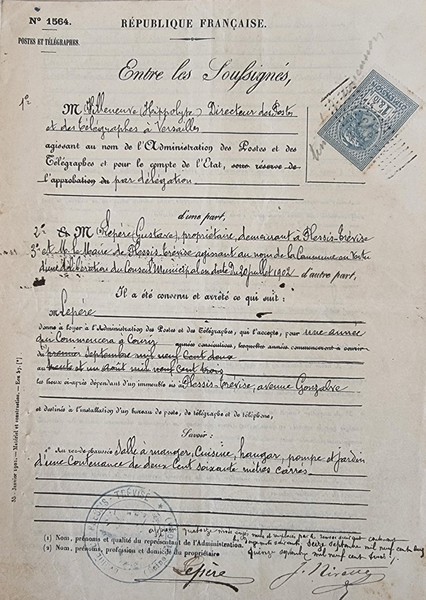 N° 1564.
RÉPUBLIQUE FRANÇAISE.
POSTES ET TÉLÉGRAPHES.
Entre les Soussignés,
1° M Villeneuve (Hippolyte) Directeur des Postes
et des Télégraphes à Versailles
agissant au nom de l'Administration des Postes et des
Télégraphes et pour le compte de l'Etat, sous réserve de
l'approbation du par délégation
d'une part,
2° Et M Lepère (Gustave), propriétaire, demeurant à Plessis-Trévise
3° et M. le Maire de Plessis-Trévise agissant au nom de la Commune en vertu
d'une délibération du Conseil Municipal en date du 20 juillet 1902 d'autre part,
Il a été convenu et arrêté ce qui suit :
M Lepère
donne à loyer à l'Administration des Postes et des Télégraphes, qui l'accepte, pour une année
qui commencera à courir années consécutives, lesquelles années commenceront à courir
du premier septembre mil neuf cent deux
au trente et un août mil neuf cent trois
les lieux ci-après dépendant d'un immeuble sis à Plessis-Trévise, avenue Gonzalve
et destinés à l'installation d'un bureau de poste, de télégraphe et de téléphone;
Savoir :
Au rez-de-chaussée Salle à manger, Cuisine, hangar, pompe et jardin
d'une contenance de deux cent soixante mètres carrés.
(1) Nom, prénoms et qualité du représentant de l'Administration.
(2) Nom, prénoms, profession et domicile du propriétaire
seize septembre mil neuf cent
quinze septembre mil neuf cent trois
Lepère